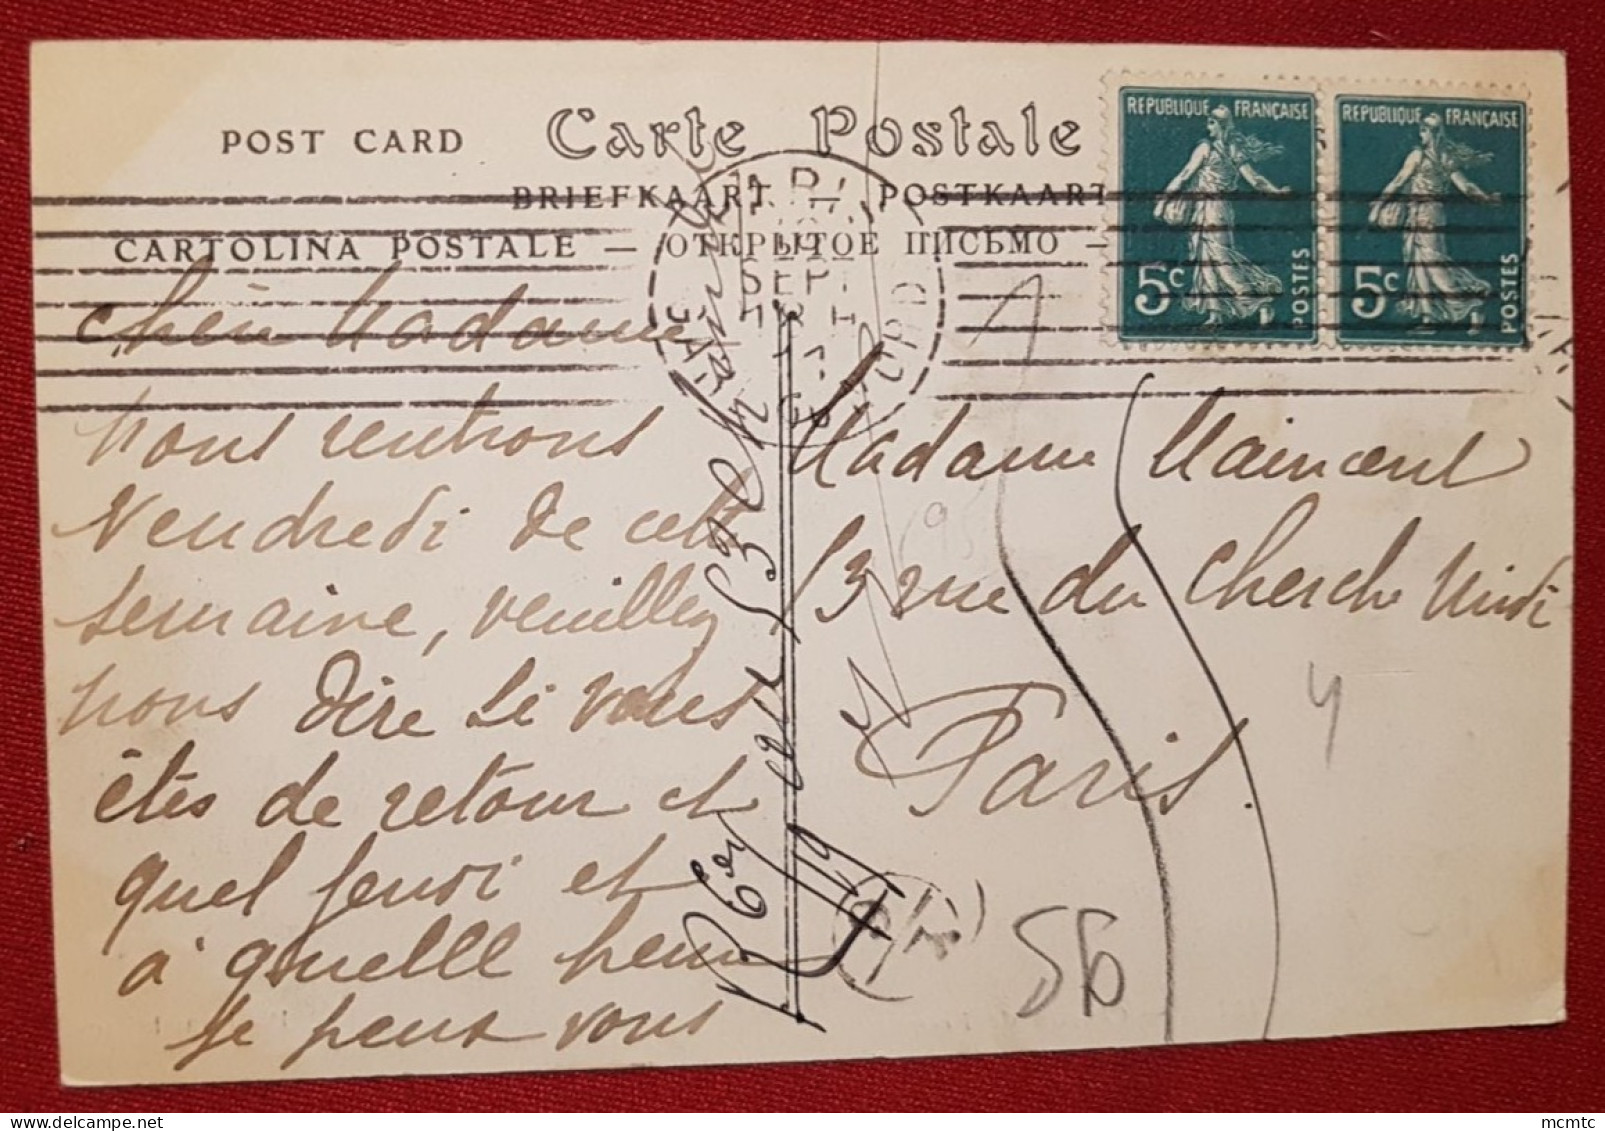 POST CARD Carte Postale
BRIEFKAART — POSTKAART
CARTOLINA POSTALE — ОТКРЫТОЕ ПИСЬМО —
REPUBLIQUE FRANÇAISE
5c POSTES
REPUBLIQUE FRANÇAISE
5c POSTES
SEPT
Chère Madame
Nous rentrons
Vendredi de cette
semaine, veuillez
nous dire si vous
êtes de retour et
quel jeudi et
à quelle heure
je peux vous
Madame Maincent
53 rue du Cherche Midi
Paris.
56
mcmtc